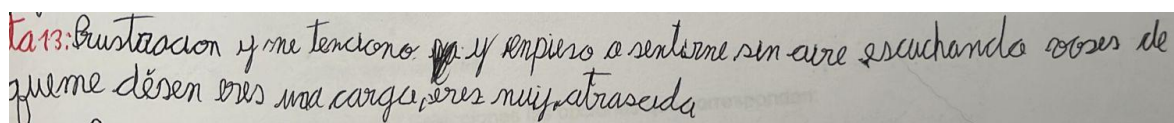 ta 13: frustracion y me tenciono y enpiezo a sentirme sin aire escuchando voses de
que me disen eres una carga, eres muy atrasada